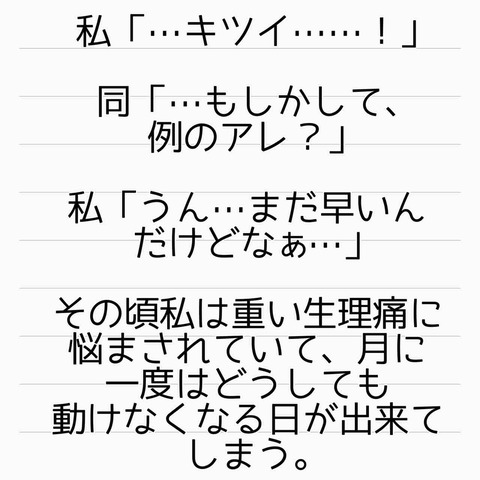 私「…キツイ……！」
同「…もしかして、
例のアレ？」
私「うん…まだ早いん
だけどなぁ…」
その頃私は重い生理痛に
悩まされていて、月に
一度はどうしても
動けなくなる日が出来て
しまう。